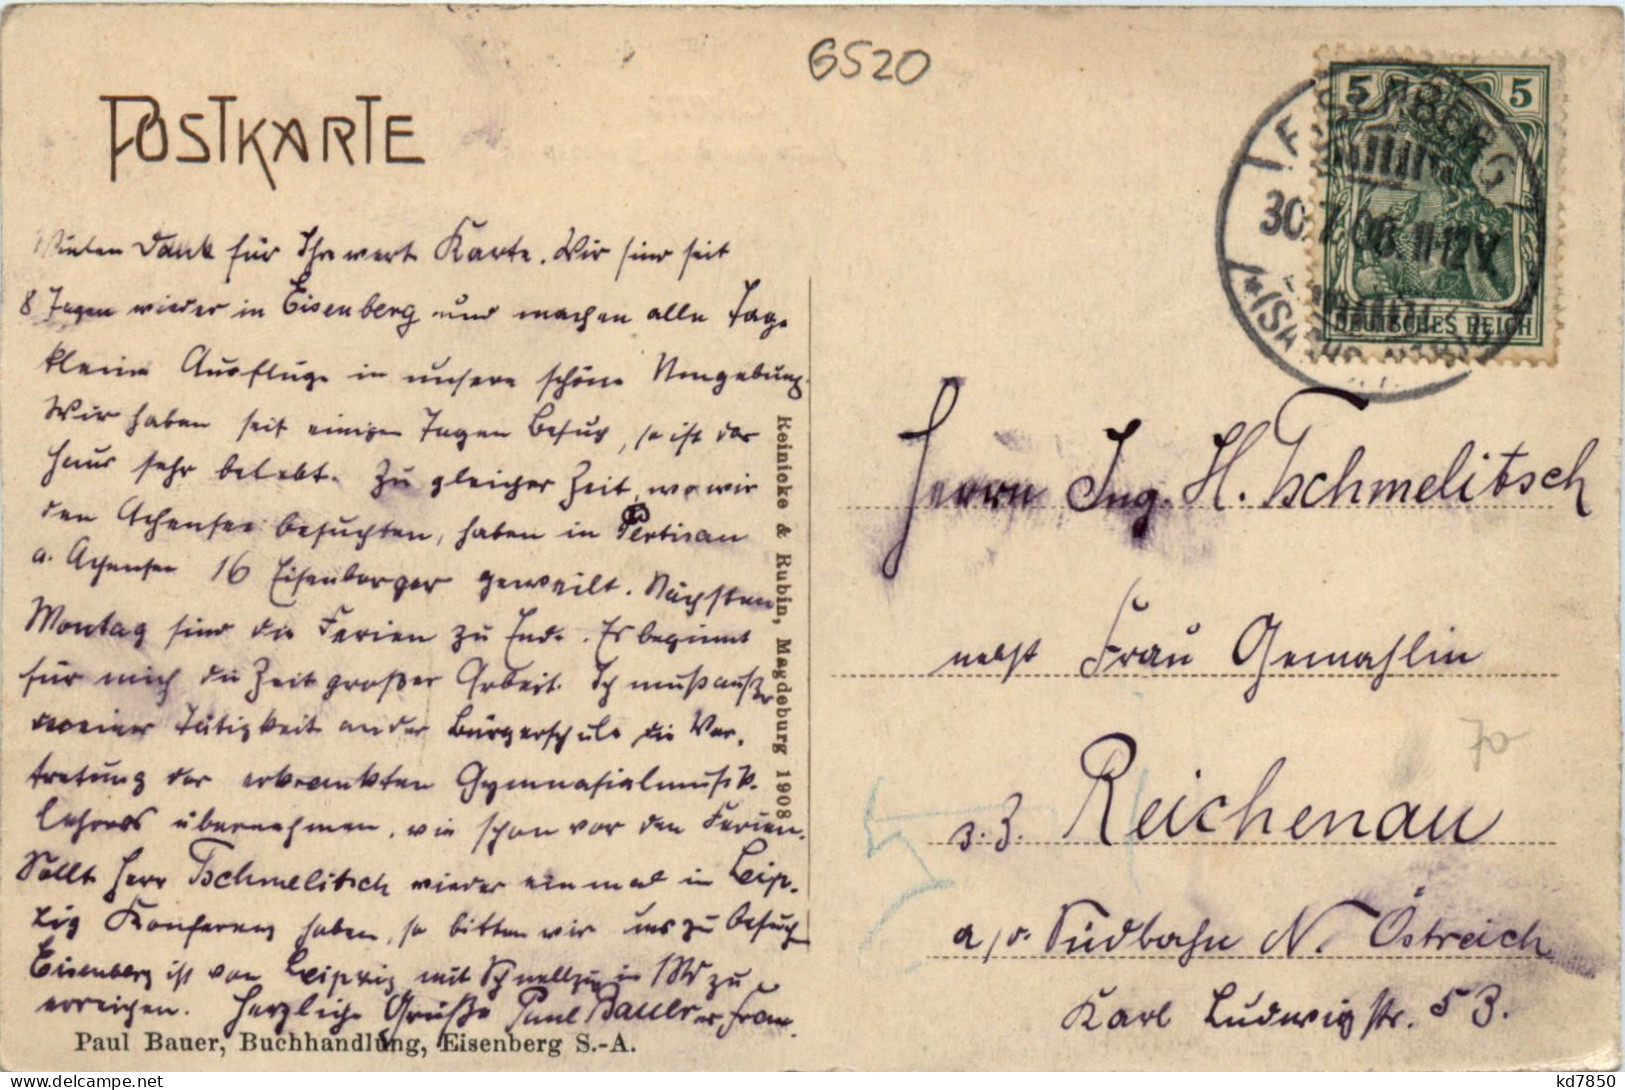 6520
POSTKARTE
5 5
EISENBERG
30.7.08. 11-12 V
*(SA
DEUTSCHES REICH
Vielen Dank für Ihre werte Karte. Wir sind seit
8 Tagen wieder in Eisenberg und machen alle Tage
kleine Ausflüge in unsere schöne Umgebung.
Wir haben seit einigen Tagen Besuch, so ist das
Haus sehr belebt. Zu gleicher Zeit, wo wir
den Achensee besuchten, haben in Pertisau
a. Achensee 16 Eisenberger geweilt. Nächsten
Montag sind die Ferien zu Ende. Es beginnt
für mich die Zeit großer Arbeit. Ich muß außer
meiner Tätigkeit an der Bürgerschule die Ver-
tretung des erkrankten Gymnasialmusik-
lehrers übernehmen, wie schon vor den Ferien.
Sollte Herr Tschmelitsch wieder einmal in Leip-
zig Konferenz haben, so bitten wir uns zu besuchen
Eisenberg ist von Leipzig mit Schnellzug in 1 St zu
erreichen. Herzliche Grüße Paul Bauer u. Frau.
Paul Bauer, Buchhandlung, Eisenberg S.-A.
Reinicke & Rubin, Magdeburg 1908
Herrn Ing. H. Tschmelitsch
nebst Frau Gemahlin
70
z. Z. Reichenau
a. d. Südbahn N. Östreich
Karl Ludwigstr. 53.
kd7850